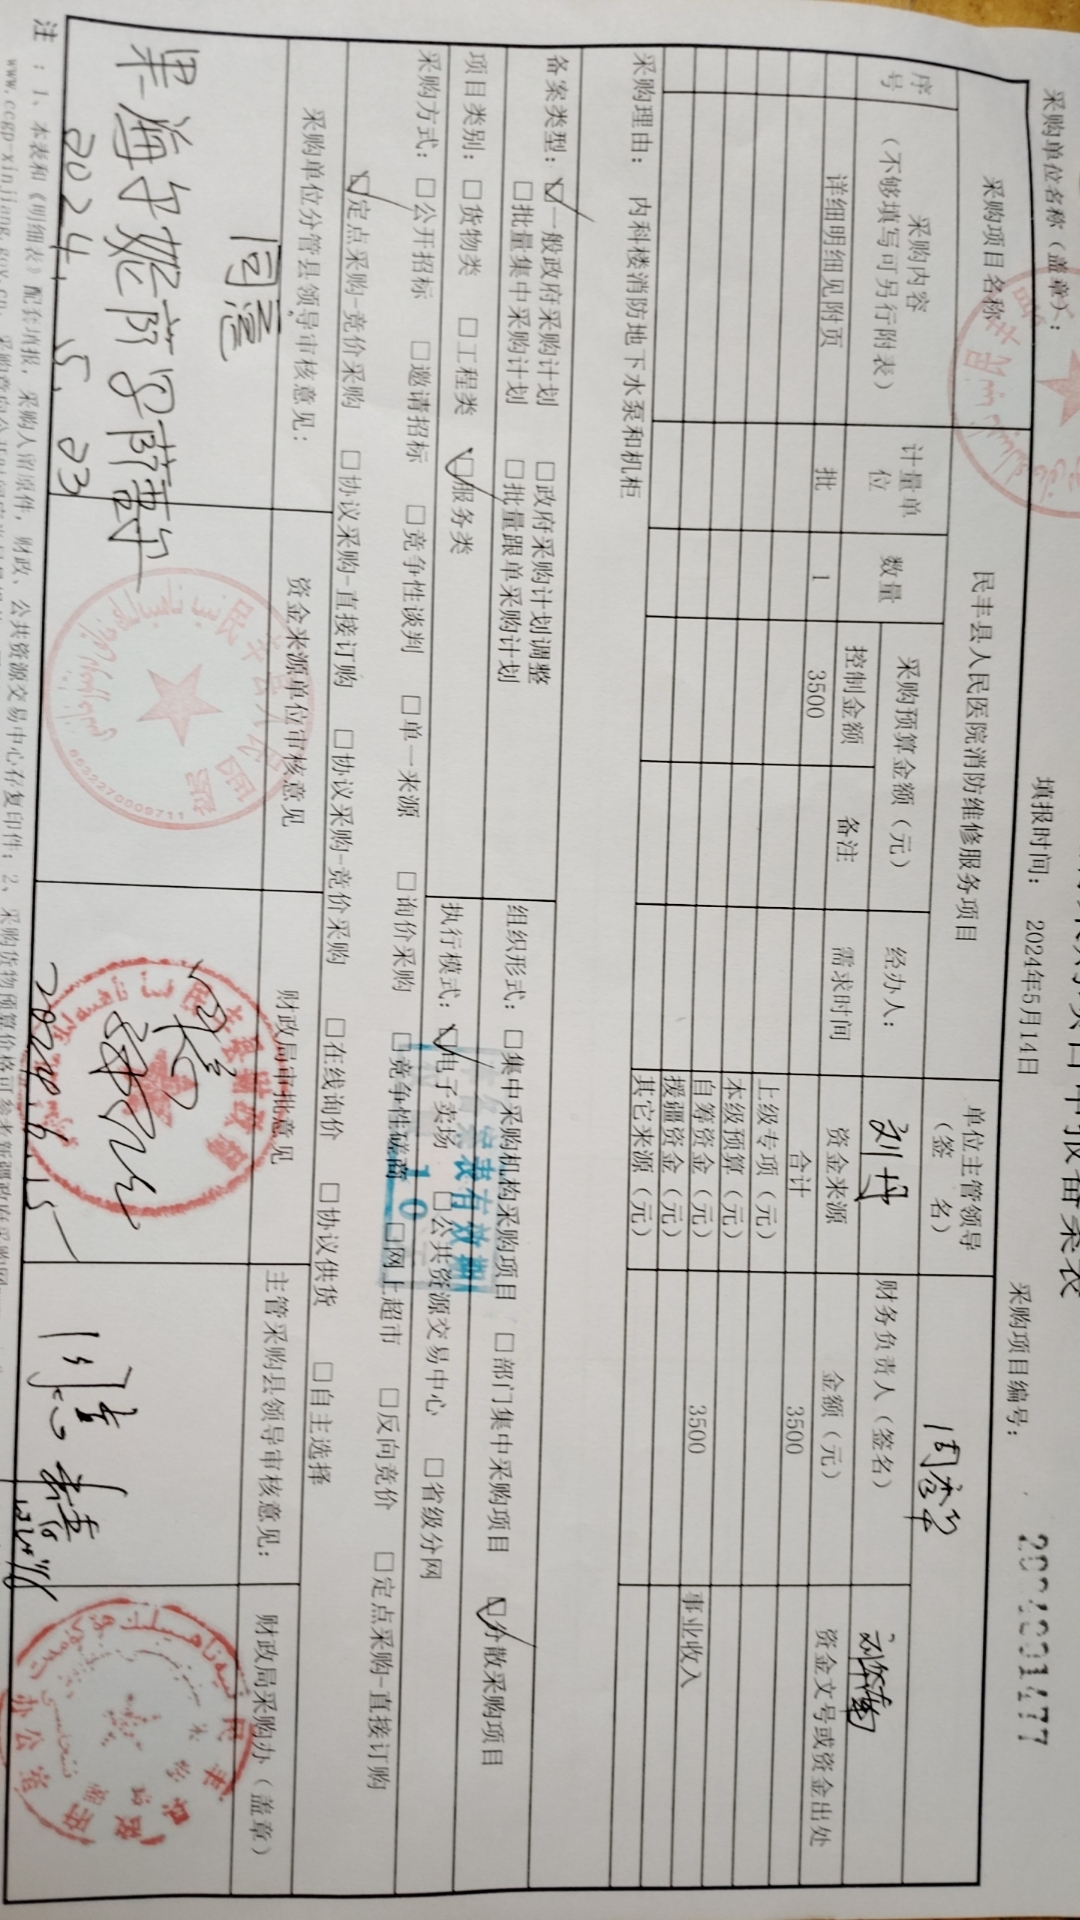 采购单位名称（盖章）：
填报时间： 2024年5月14日
采购项目编号：
采购项目名称
民丰县人民医院消防维修服务项目
单位主管领导（签 名）
同意
序号
采购内容（不够填写可另行附表）
计量单位
数量
采购预算金额（元）
经办人：
刘丹
财务负责人（签名）
控制金额
备注
需求时间
资金来源
金额（元）
资金文号或资金出处
详细明细见附页
批
1
3500
合计
3500
上级专项（元）
本级预算（元）
自筹资金（元）
3500
事业收入
援疆资金（元）
其它来源（元）
采购理由： 内科楼消防地下水泵和机柜
备案类型：☑一般政府采购计划 □政府采购计划调整
□批量集中采购计划 □批量跟单采购计划
组织形式：□集中采购机构采购项目 □部门集中采购项目 ☑分散采购项目
项目类别：□货物类 □工程类 ☑服务类
执行模式：☑电子卖场 □公共资源交易中心 □省级分网
采购方式：□公开招标 □邀请招标 □竞争性谈判 □单一来源 □询价采购 □竞争性磋商 □网上超市 □反向竞价 □定点采购-直接订购
☑定点采购-竞价采购 □协议采购-直接订购 □协议采购-竞价采购 □在线询价 □协议供货 □自主选择
采购单位分管县领导审核意见：
资金来源单位审核意见
财政局审批意见
主管采购县领导审核意见：
财政局采购办（盖章）
同意
2024.5.23
民丰县人民医院
6532270009711
民丰县财政局
2024.6.15
同意
备案表有效期
10
注：1、本表和《明细表》配套填报，采购人留原件，财政、公共资源交易中心存复印件；2、采购货物预算价格可参考新疆政府采购网
www.ccgp-xinjiang.gov.cn